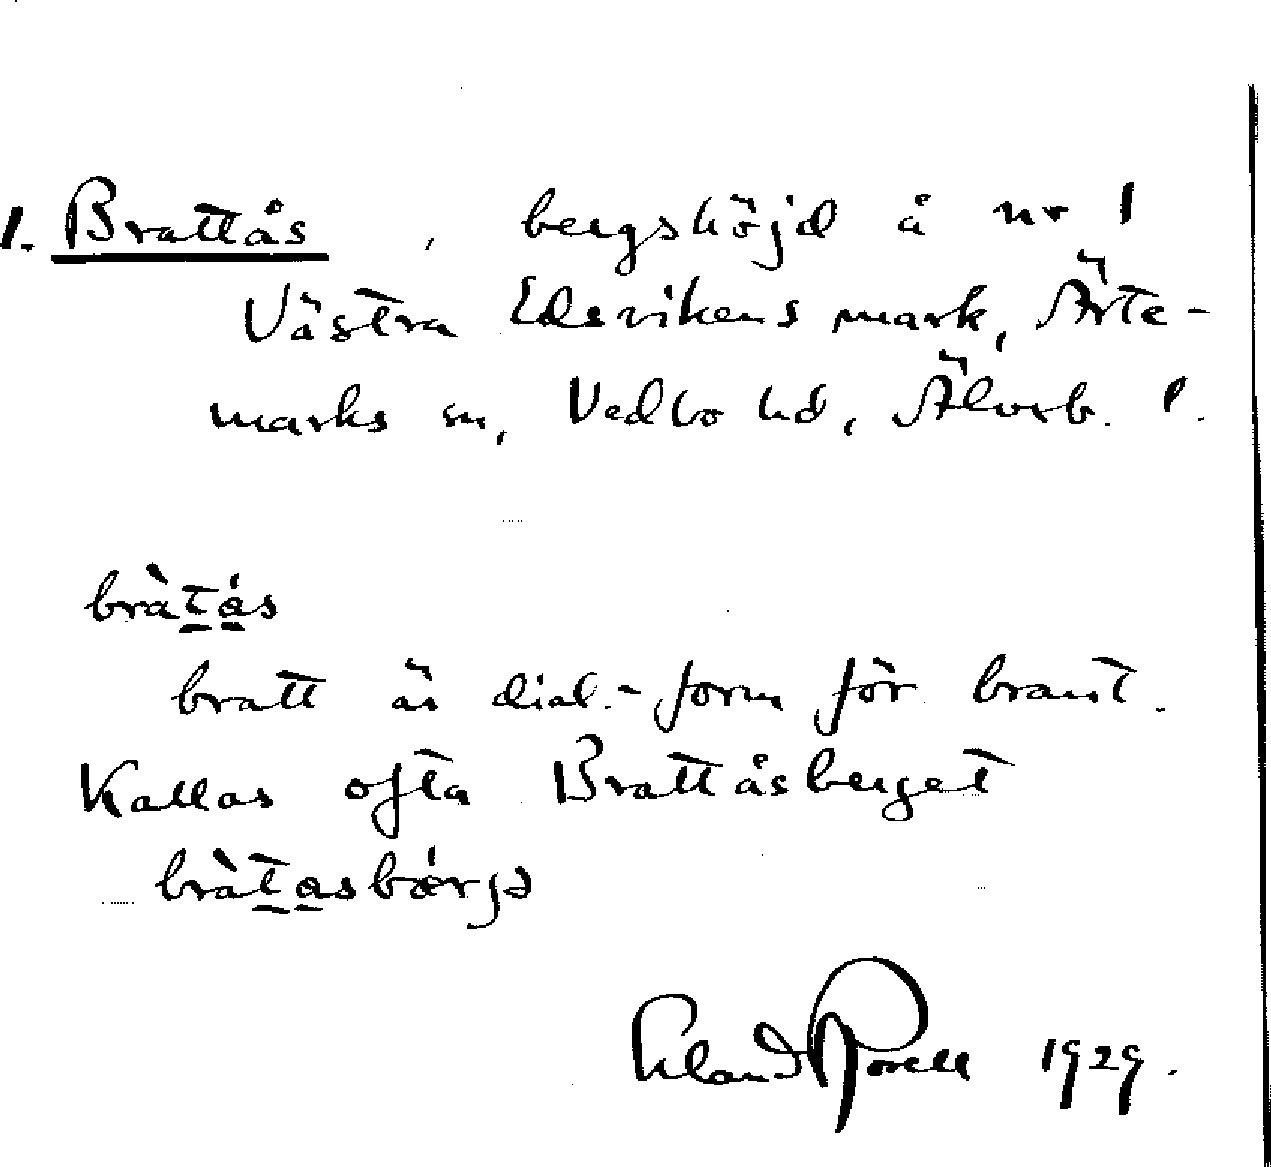 1. Brattås, bergshöjd å nr 1
Västra Edsvikens mark, Ärte-
marks sn, Vedbo hd, Älvsb. l.
bràt̲á̲s
bratt är dial.-form för brant.
Kallas ofta Brattåsberget
bràt̲a̲sbǽrjə
Erland Rosell 1929.